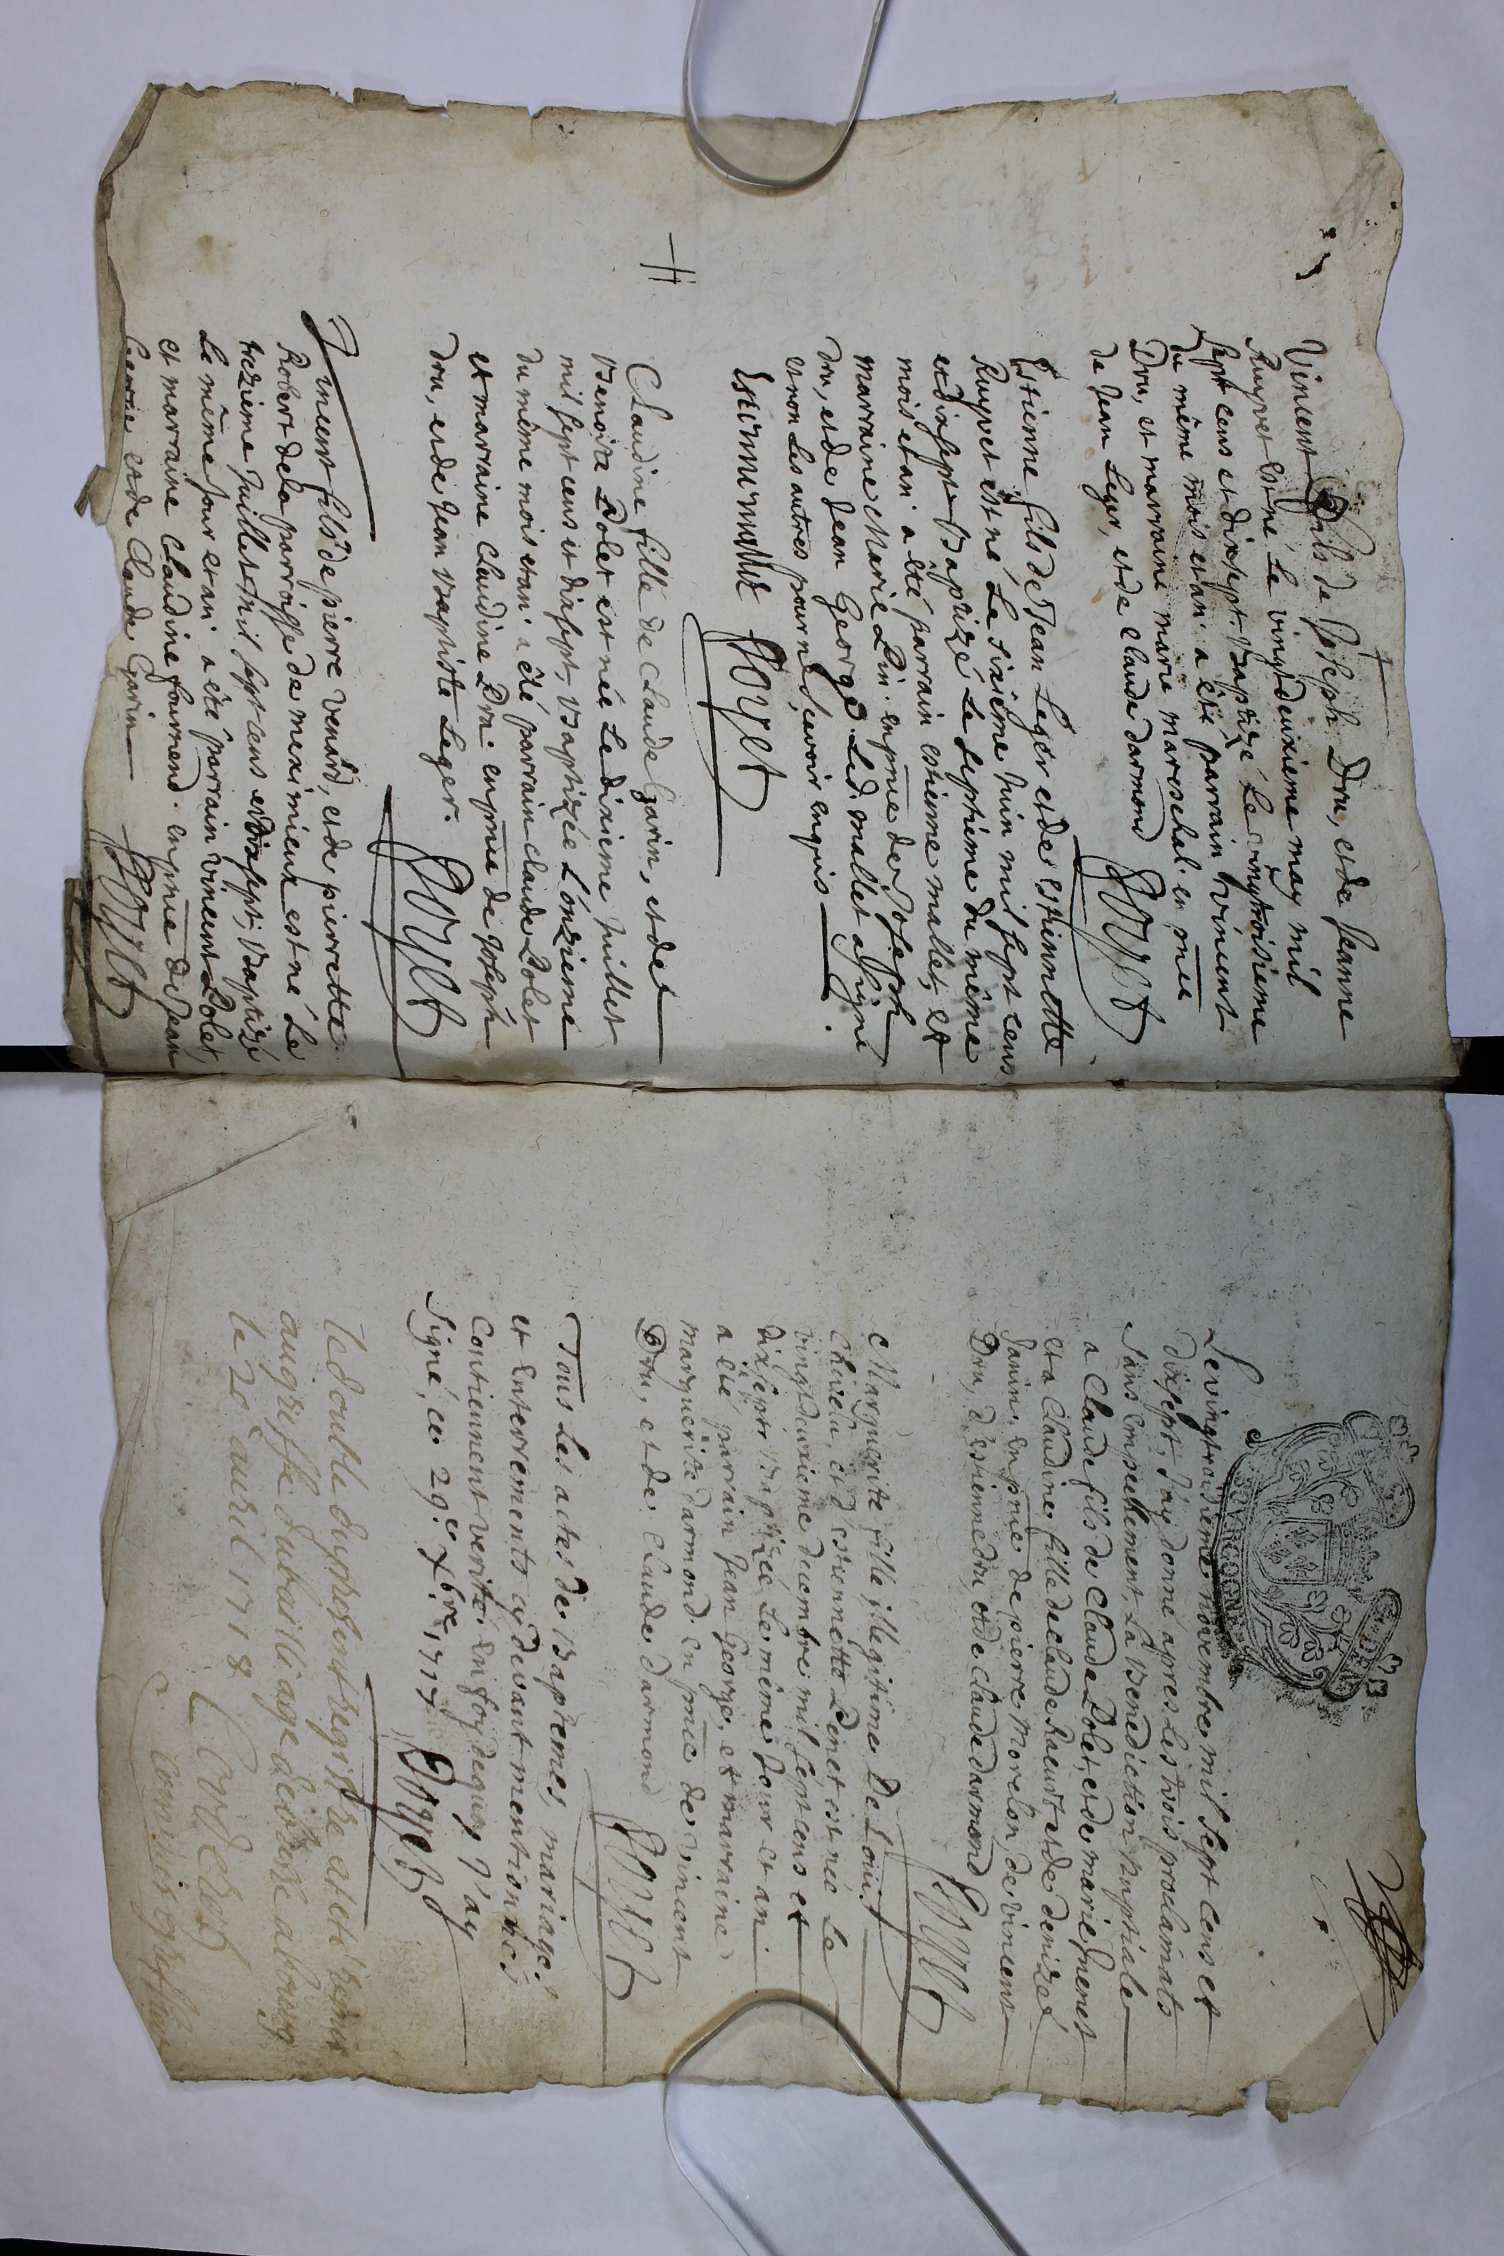 Vincent fils de Joseph Dru, et de Jeanne
Ruyvet est né Le vingt deuxieme may mil
sept cens et dixsept. Baptizé Le vingtroisieme
du même mois et an. a été parrain vincent
Dru, et marraine marie mareschal. en pnce
de Jean Leger, et de claude darmond
Royet
Estienne fils de Jean Leger et de estiennette
Ruyvet est né Le sixième Juin mil sept cens
et dixsept. Baptizé Le septième du même
mois et an a été parrain estienne mallet, et
marraine Marie Pin. en pnce de Joseph
Dru, et de Jean George. Led. mallet a signé
et non Les autres pour ne sçavoir enquis
Royet
Claudine fille de Claude Garin, et de
Benoite Polet est née Le dixieme Juillet
mil sept cens et dixsept, Baptizée L'onzieme
du même mois et an a été parrain claude Polet
et marraine Claudine Dru. en pnce de Joseph
Dru, et de Jean Baptiste Leger.
Royet
Vincent fils de pierre venard, et de pierrette
Robert de la parroisse de meximieux est né Le
trezieme Juillet mil sept cens et dixsept, Baptizé
Le même Jour et an a été parrain vincent Polet,
et marraine Claudine fournend. en pnce de Jean
et de Claude Garin
Royet
BOURGOGNE
Le vingtroisieme novembre mil sept cens et
dixsept, J'ay donné apres Les trois proclamats
sans empeschement, La Benediction nuptiale
a Claude fils de Claude Polet, et de marie
et a Claudine fille de claude et de denize
Janin. en pnce de pierre Morelon, de vincent
Dru, d'estienne dru, et de Claude darmond
Royet
Marguerite fille illegitime De Louis
et d'estiennette Penet est née Le
vingt deuxieme decembre mil sept cens et
dixsept. Baptizée Le même Jour et an
a été parrain Jean George, et marraine
marguerite darmond. en pnce de vincent
Dru, et de Claude darmond
Royet
Tous Les actes de Baptemes, mariages
et Enterrements cy devant mentionnéz
Contiennent verité. En foy de quoy J'ay
signé, ce 29e Xbre 1717
Royet
le double du present registre a eté remis
au greffe du bailliage de
le 20e auril 1718
commis greffier